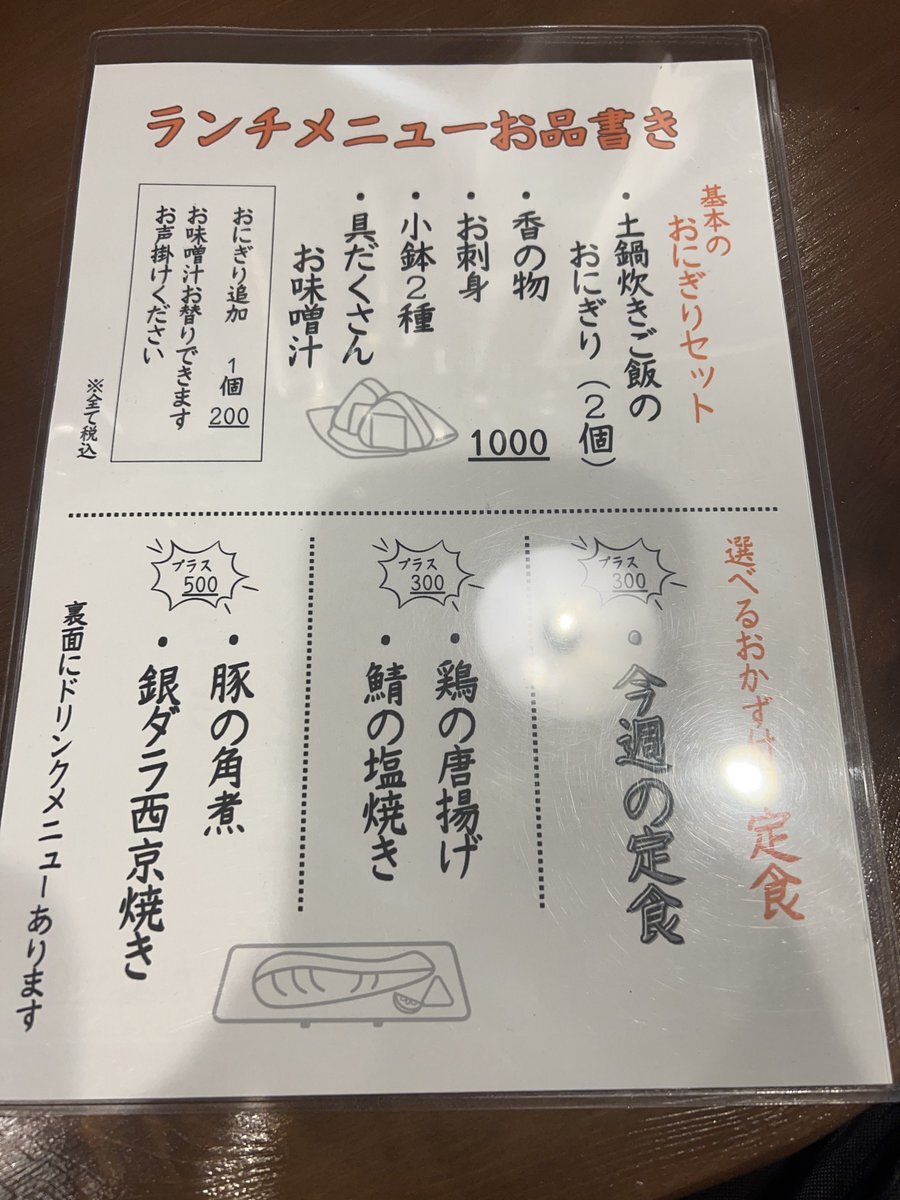 ランチメニューお品書き
基本の
おにぎりセット
・土鍋炊きご飯の
おにぎり（2個）
・香の物
・お刺身
・小鉢2種
・具だくさん
お味噌汁
1000
おにぎり追加　1個
200
お味噌汁お替りできます
お声掛けください
※全て税込
選べるおかず 定食
プラス
300
・今週の定食
プラス
300
・鶏の唐揚げ
・鯖の塩焼き
プラス
500
・豚の角煮
・銀ダラ西京焼き
裏面にドリンクメニューあります